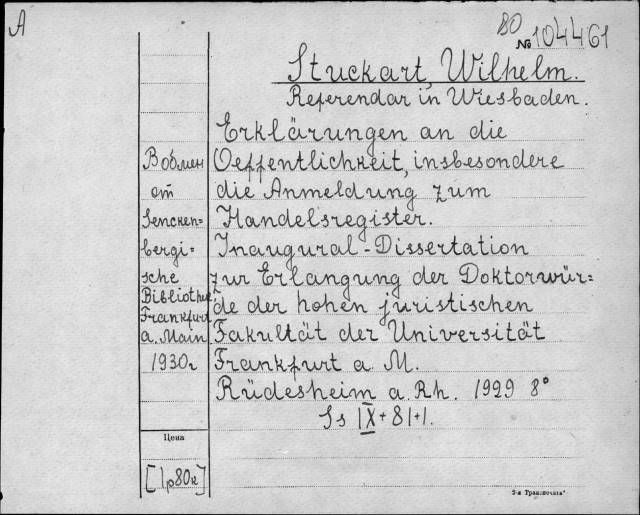 A
80
№ 104461
Stuckart, Wilhelm.
Referendar in Wiesbaden.
Erklärungen an die
Oeffentlichkeit, insbesondere
die Anmeldung zum
Handelsregister.
Inaugural-Dissertation
zur Erlangung der Doktorwür=
de der hohen juristischen
Fakultät der Universität
Frankfurt a. M.
Rüdesheim a. Rh. 1929 8°
Ss IX+81+1.
Вобмен
от
Sencken=
bergi=
sche
Bibliothek
Frankfurt
a. Main
1930г
Цена
[1р80к]